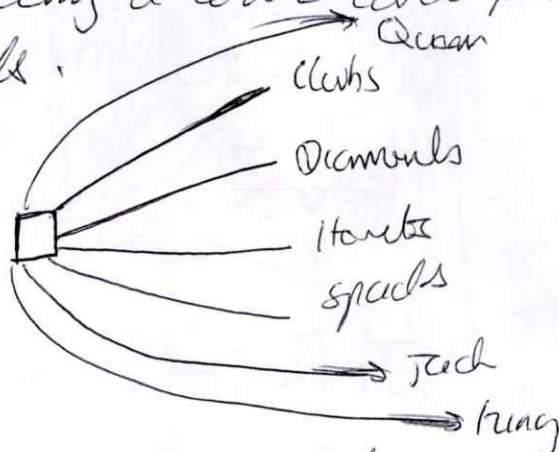 a
s.
Queen
Clubs
Diamonds
Hearts
Spades
Jack
King